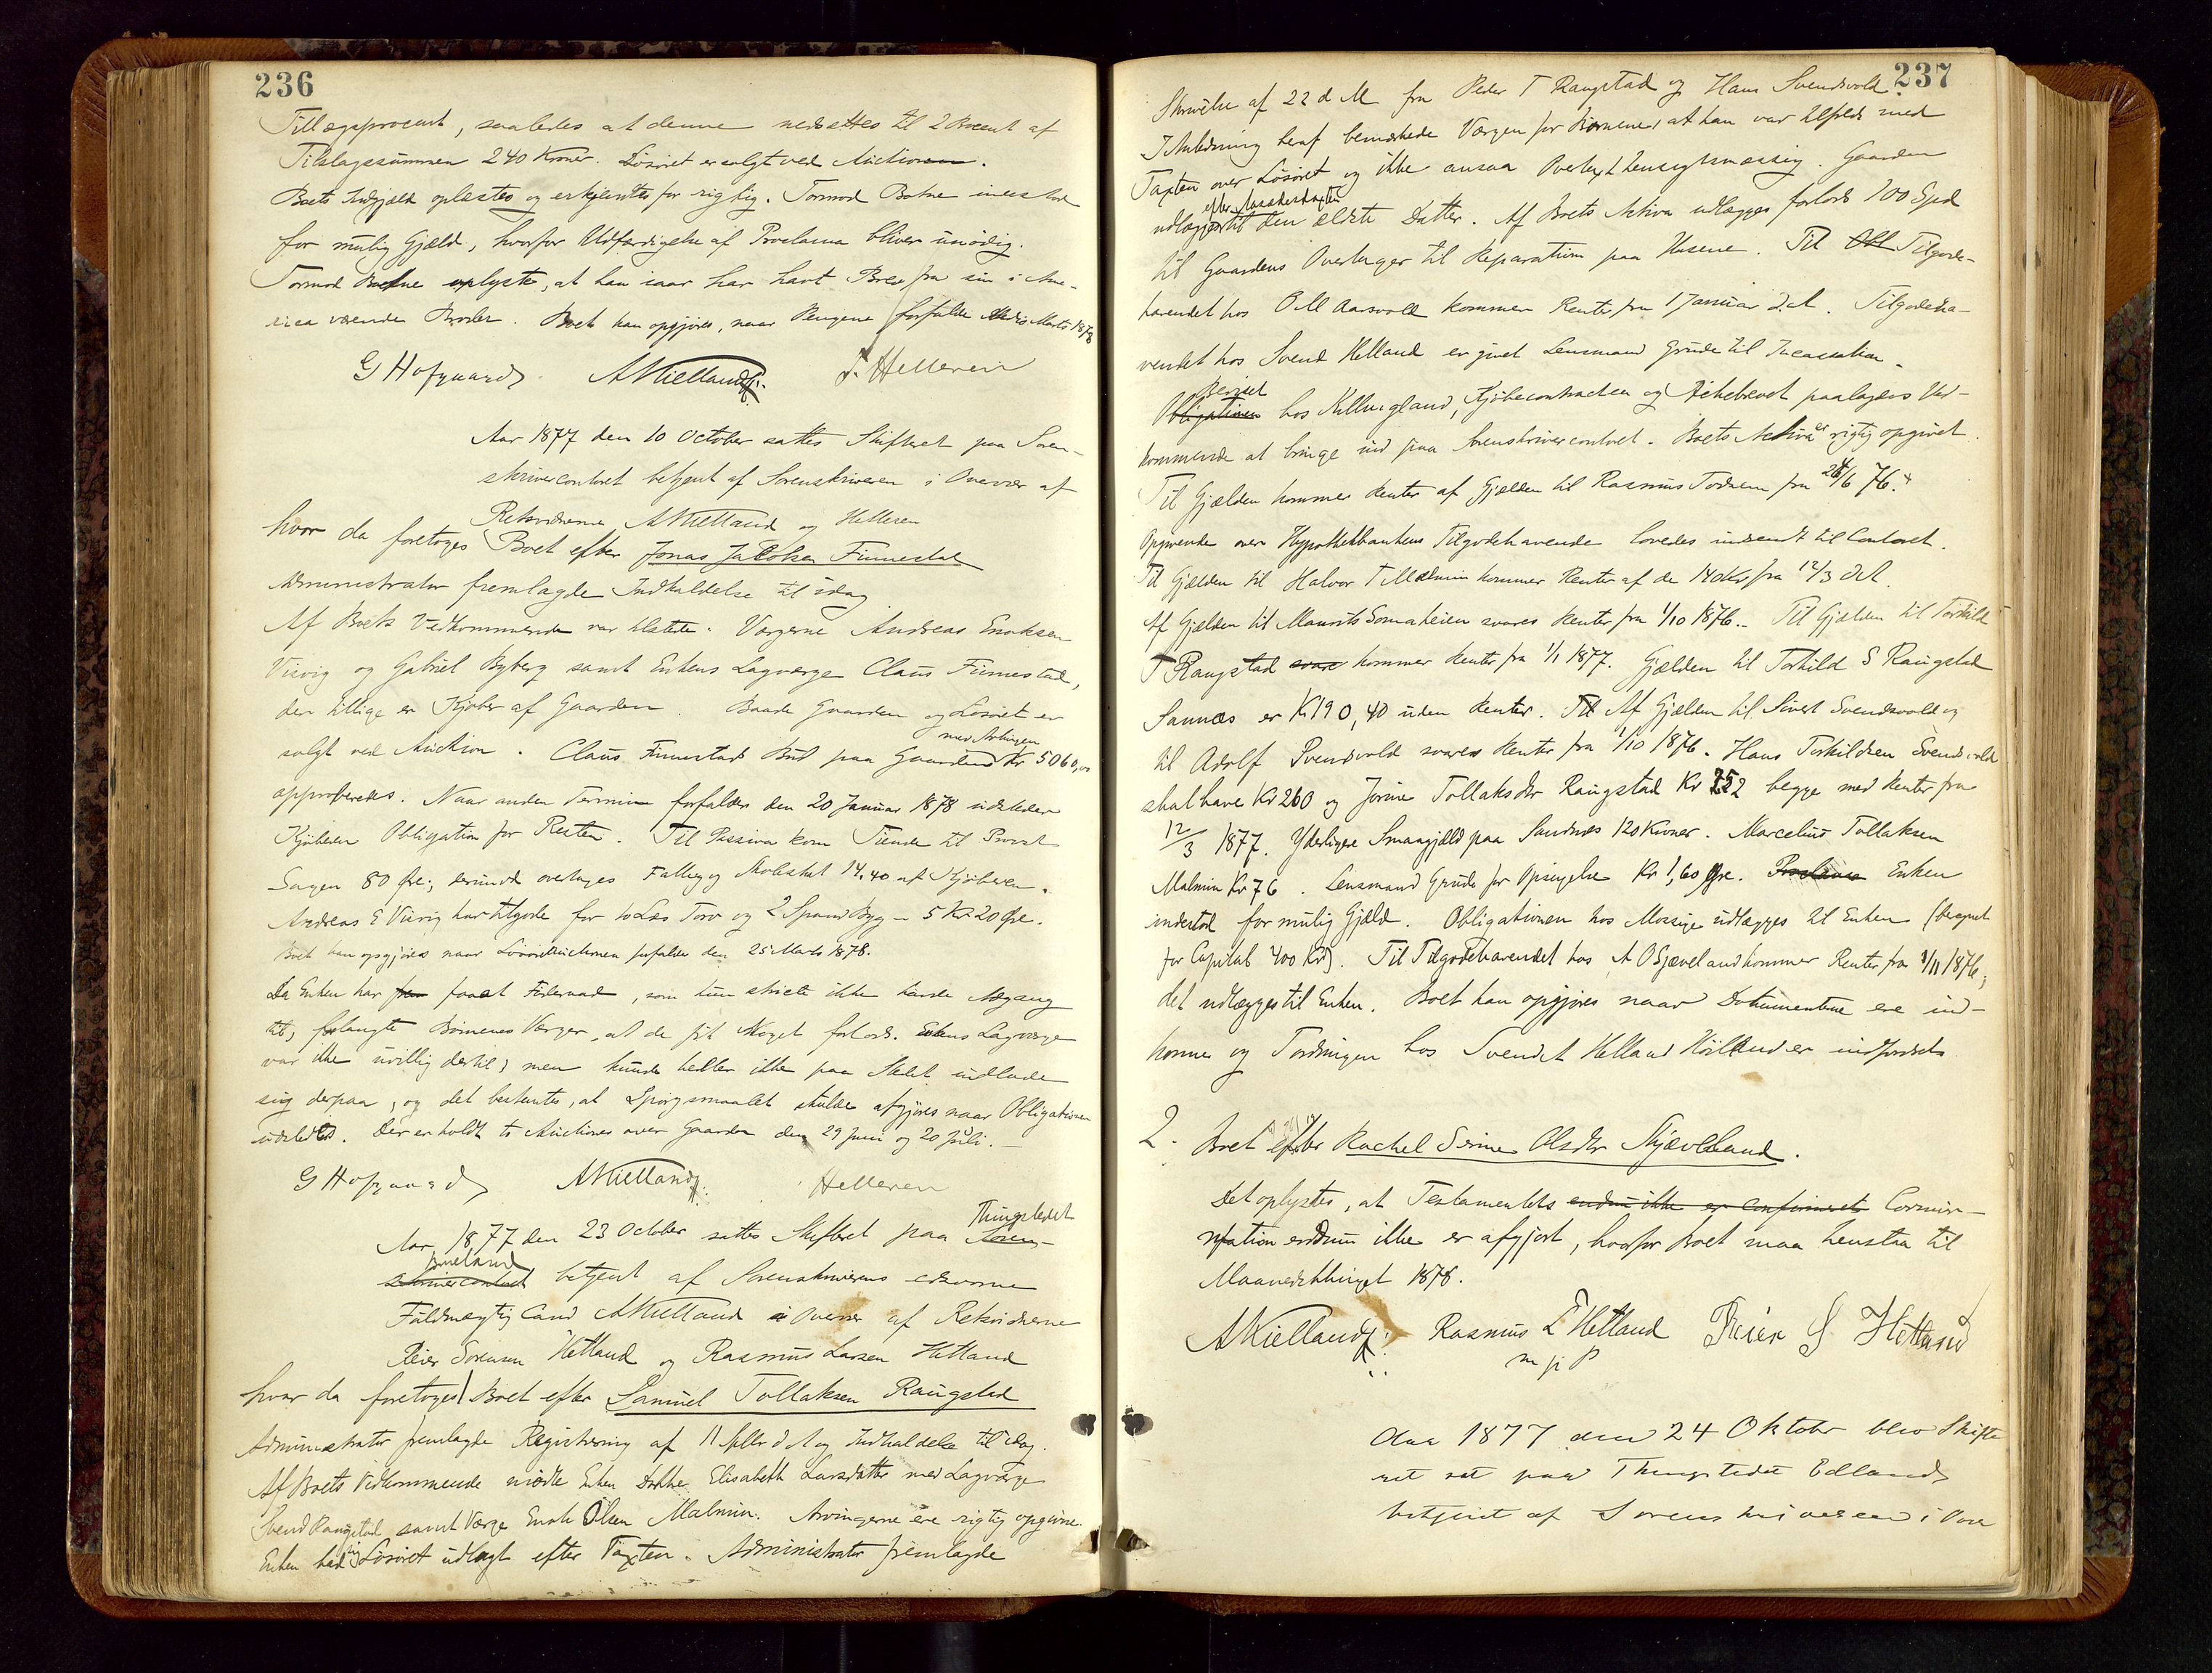 236
Tillægsprocent, saaledes at denne nedsættes til 2 Procent af
Tilslagssummen 240 Kroner. Løsøret er solgt ved Auction.
Boets Indgjæld oplæstes og erkjendtes for rigtig. Tormod Botne indestod
for mulig Gjæld, hvorfor Udfærdigelse af Proclama bliver unødig.
Tormod Botne oplyste, at han iaar har havt Brev fra sin i Ame-
rica værende Broder. Boet kan opgjøres, naar Pengene forfalde Medio Marts 1878
G Hofgaard AKielland T. Helleren
Aar 1877 den 10 October sattes Skifteret paa Soren-
skrivercontoret betjent af Sorenskriveren i Overvær af
Retsvidnerne AKielland og Helleren
hvor da foretoges Boet efter Jonas Jacobsen Finnestad
Administrator fremlagde Indkaldelse til idag
Af Boets Vedkommende var tilstede. Værgerne Andreas Enoksen
Viervig og Gabriel Byberg samt Enkens Lagværge Claus Finnestad,
der tillige er Kjøber af Gaarden. Baade Gaarden og Løsøret er
solgt ved Auction. Claus Finnestads Bud paa Gaarden med Avlingen Kr 5060,00
approberedes. Naar anden Termin forfalder den 20 Januar 1878 udsteder
Kjøberen Obligation for Resten. Til Passiva kom Tiende til Provst
Sagen 80 Øre; derimod overtages Fattig og Skoleskat 14.40 af Kjøberen.
Andreas E Viervig har tilgode for to Læs Torv og 2 Spand Byg – 5 Kr 20 Øre.
Boet kan opgjøres naar Løsøreauctionen forfalder den 25 Marts 1878.
Da Enken har faaet Føderaad, som hun strict ikke havde Adgang
til, forlangte Børnenes Værger, at de fik Noget forlods. Enkens Lagværge
var ikke uvillig dertil, men kunde heller ikke paa Stedet indlade
sig derpaa, og det bestemtes, at Spørgsmaalet skulde afgjøres naar Obligationen
udstedtes. Der er holdt to Auctioner over Gaarden den 29 Juni og 20 Juli. –
G Hofgaard AKielland Helleren
Aar 1877 den 23 October sattes Skifteret paa Thingstedet Soren-
Bueland skrivercontoret betjent af Sorenskriverens edsvorne
Fuldmægtig Cand AKielland i Overvær af Retsvidnerne
Reier Sørensen Hetland og Rasmus Larsen Hetland
hvor da foretoges 1 Boet efter Samuel Tollaksen Raugstad
Administrator fremlagde Registrering af 11 Septbr d A og Indkaldelse til idag.
Af Boets Vedkommende mødte Enken Elisabeth Larsdatter med Lagværge
Svend Raugstad samt Værge Enok Olsen Malmin. Arvingerne ere rigtig opgivne.
Enken bad sig Løsøret udlagt efter Taxten. Administrator fremlagde
237
Skrivelse af 22 d M fra Peder T Raugstad og Hans Svendsvold.
I Anledning heraf bemærkede Værgen for Børnene, at han var tilfreds med
Taxten over Løsøret og ikke ansaa Overtaxt hensigtsmæssig. Gaarden
udlægges til den ældste Datter. Af Boets Activa udlægges forlods 100 Spd
til Gaardens Overtager til Reparation paa Husene. Til Tilgode-
havendet hos O M Aarsvold kommer Renter fra 1 Januar d.A. Tilgodeha-
vendet hos Svend Helland er givet Lensmand Grude til Incassation.
Beviset Obligationen hos Kellingland, Kjøbecontracten og paalagdes Ved-
kommende at bringe ind paa Sorenskrivercontoret. Boets Activa er rigtig opgivet.
Til Gjælden kommer Renter af Gjælden til Rasmus Todnem fra 26/6 76.
Opgivende over Hypothekbankens Tilgodehavende lovedes indsendt til Contoret.
Til Gjælden til Halvor T Malmin kommer Renter af de 140 Kr fra 12/3 d A.
Af Gjælden til Maurits Sømaheien svares Renter fra 1/10 1876. – Til Gjælden til Torkild
T Raugstad svare kommer Renter fra 1/1 1877. Gjælden til Torkild S Raugstad
Sannæs er Kr 190,40 uden Renter. Til Af Gjælden til Sivert Svendsvold og
til Adolf Svendsvold svares Renter fra 1/10 1876. Hans Torkildsen Svendsvold
skal have Kr 260 og Jorine Tollaksdtr Raugstad Kr 252 begge med Renter fra
12/3 1877. Yderligere Smaagjæld paa Sandnæs 120 Kroner. Marcelius Tollaksen
Malmin Kr 76. Lensmand Grude for Opsigelse Kr 1,60 Øre. Proclama Enken
indestod for mulig Gjæld. Obligationen hos Mossige udlægges til Enken (beregnet
for Capital 400 Kr). Til Tilgodehavendet hos A O Gjæveland kommer Renter fra 1/11 1876;
det udlægges til Enken. Boet kan opgjøres naar Dokumenterne ere ind-
komne og Fordringen hos Svend Helland Hølland er indfordret
2. Boet efter Rachel Serine Olsdtr Skjævland.
Det oplystes, at Testamentets endnu ikke er confirmeret Confir-
mation endnu ikke er afgjort, hvorfor Boet maa henstaa til
Maanedsthinget 1878.
AKielland Rasmus L Hetland Reier S Hetland
m j P
Aar 1877 den 24 Oktober blev Skifte
ret sat paa Thingstedet Edland
betjent af Sorenskriveren i Over